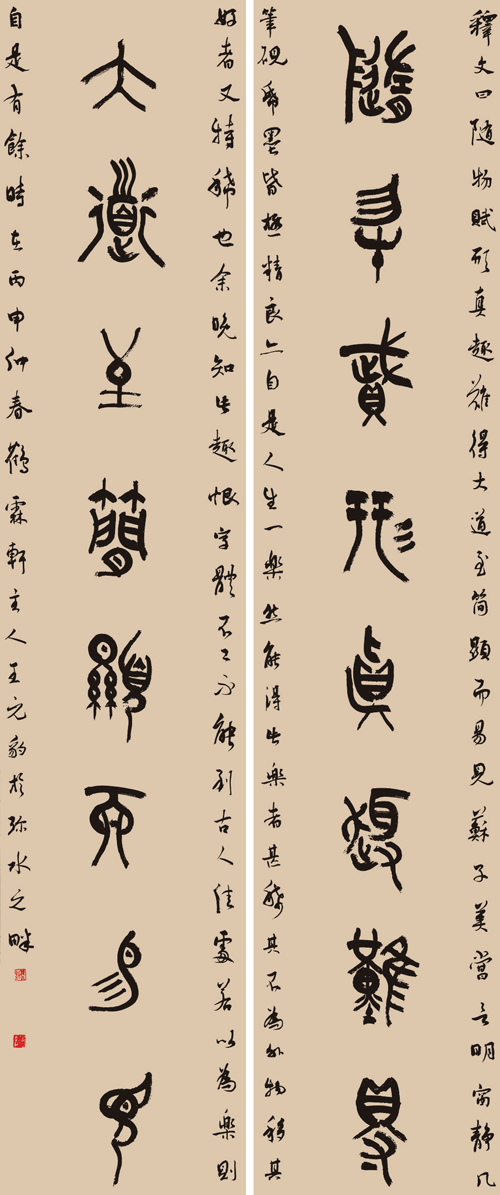 釋文曰随物賦形真趣難得大道至简顯而易見蘇子美嘗言明窗静几
隨物賦形真趣難得
筆硯紙墨皆極精良亦自是人生一樂然能得此樂者甚稀其不為外物移其
好者又特稀也余晚知此趣恨字體不工不能到古人佳處若以為樂則
大道至簡顯而易見
自是有餘時在丙申仲春鶴霖軒主人王元豹於弥水之畔